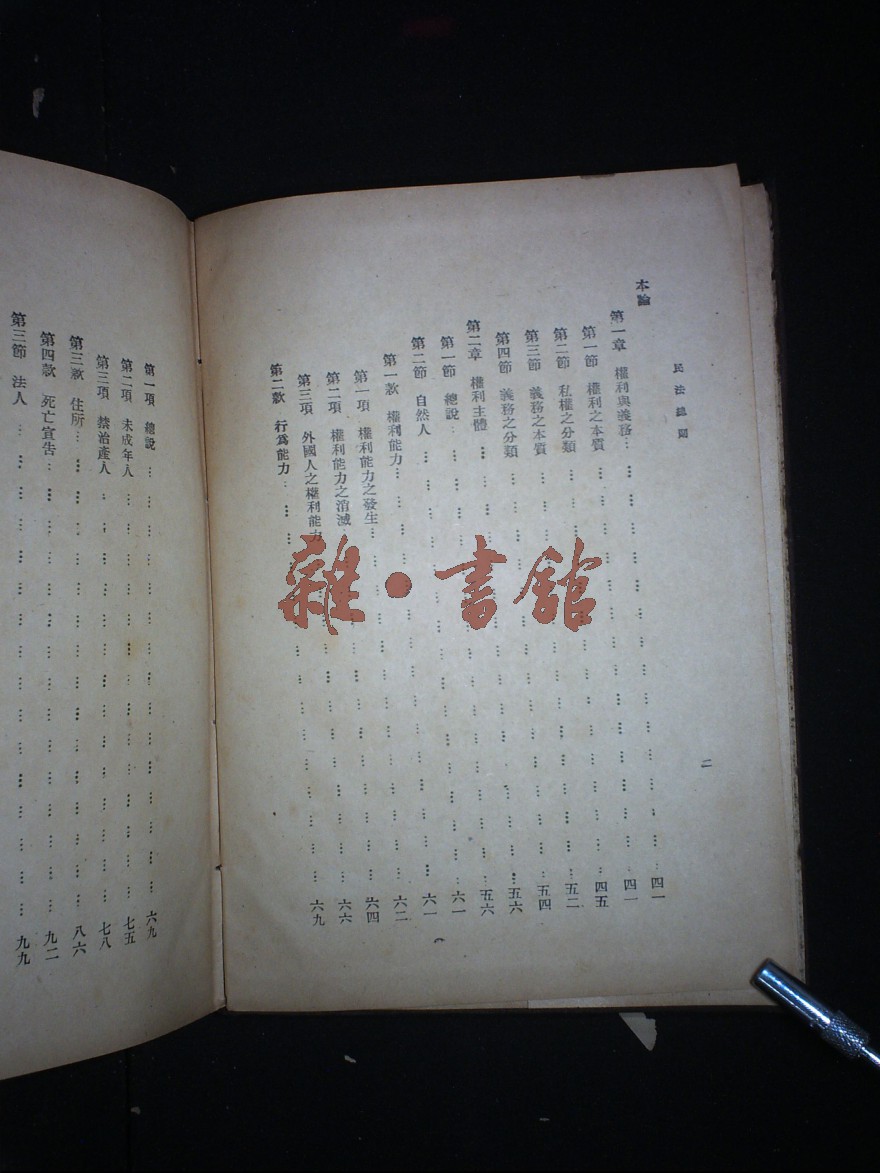 民法總則
二
本論
第一章 權利與義務……四一
第一節 權利之本質……四一
第二節 私權之分類……四五
第三節 義務之本質……五二
第四節 義務之分類……五四
第二章 權利主體……五六
第一節 總說……五六
第二節 自然人……六一
第一款 權利能力……六一
第一項 權利能力之發生……六二
第二項 權利能力之消滅……六四
第三項 外國人之權利能力……六六
第二款 行爲能力……六九
第一項 總說……六九
第二項 未成年人……七五
第三項 禁治產人……七八
第三款 住所……八六
第四款 死亡宣告……九二
第三節 法人……九九
雜·書館